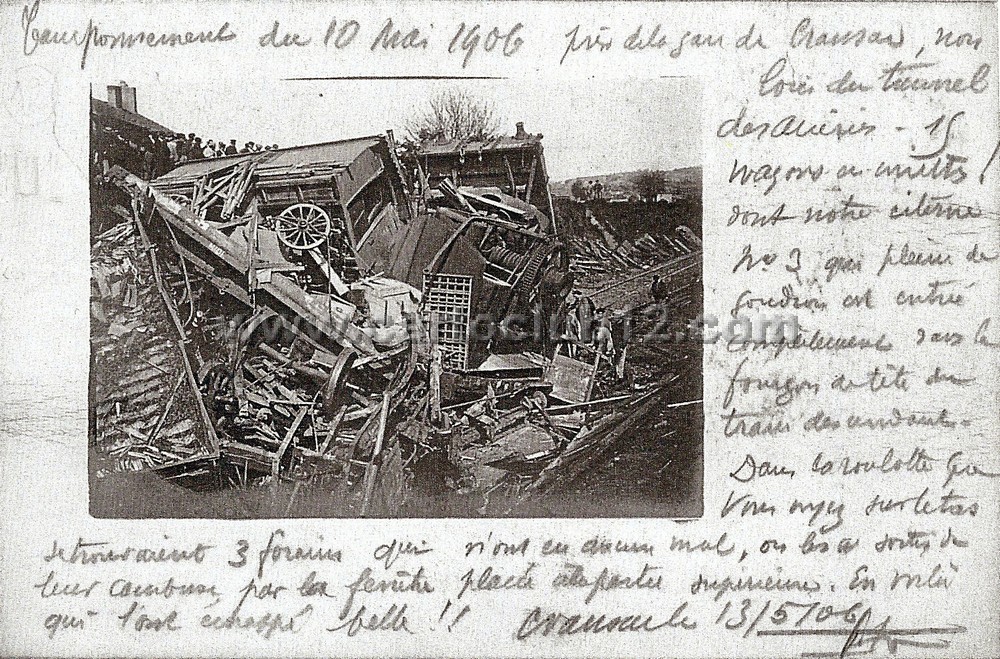 Tamponnement du 10 Mai 1906 près de la gare de Cransac, non
loin du tunnel
des
15
wagons en miettes,
dont notre citerne
No 3 qui pleine de
goudron est entrée
complètement dans le
fourgon de tête du
train descendant -
Dans la roulotte que
vous voyez sur le tas
se trouvaient 3 forains qui n'ont eu aucun mal, on les a sortis de
leur cambuse par la fenêtre placée à la partie supérieure. En voilà
qui l'ont échappé belle !!
Cransac le 13/5/06
www.cartoclub12.com